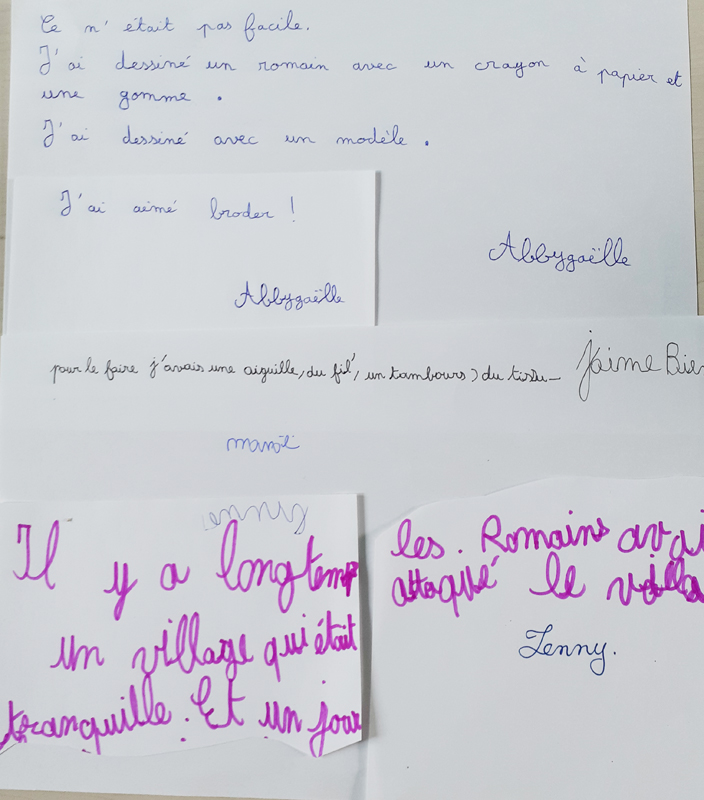 Ce n'était pas facile.
J'ai dessiné un romain avec un crayon à papier et
une gomme.
J'ai dessiné avec un modèle.
Abbygaëlle
J'ai aimé broder !
Abbygaëlle
pour le faire j'avais une aiguille, du fil, un tambours, du tissu
J'aime Bien
Il y a longtemp
un village qui était
tranquille. Et un jour
les. Romains avai
attaqué le villa
Lenny.